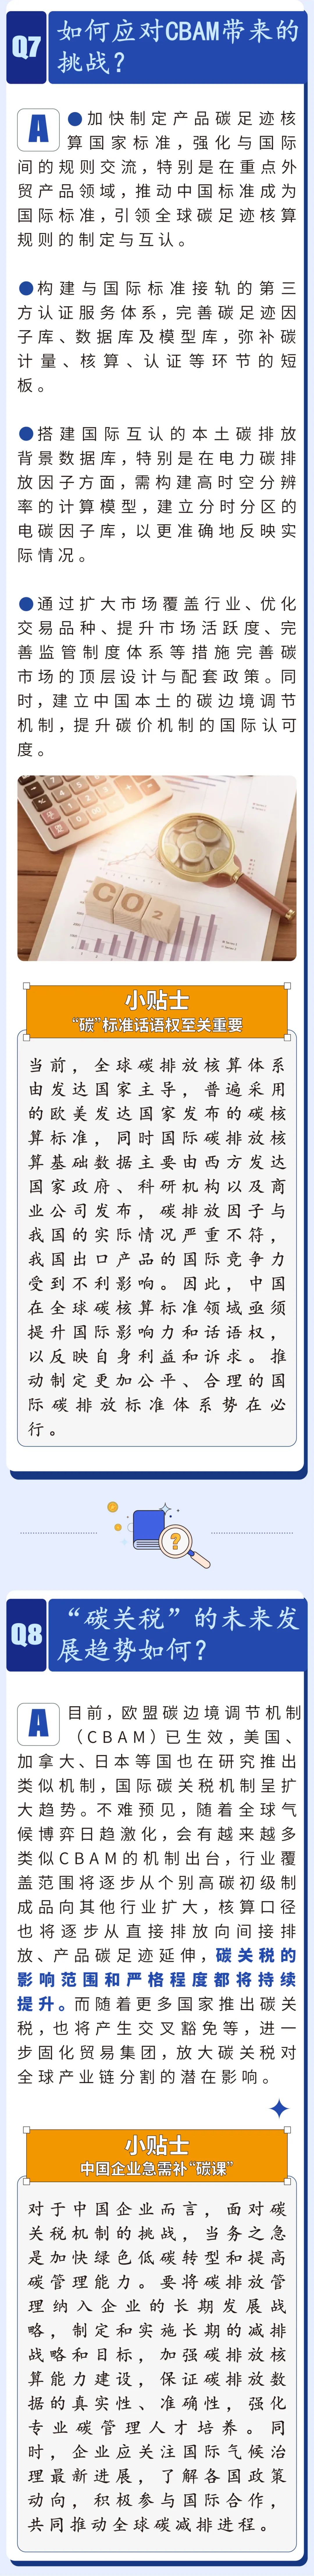 Q7
如何应对CBAM带来的
挑战？
A
●加快制定产品碳足迹核
算国家标准，强化与国际
间的规则交流，特别是在重点外
贸产品领域，推动中国标准成为
国际标准，引领全球碳足迹核算
规则的制定与互认。
●构建与国际标准接轨的第三
方认证服务体系，完善碳足迹因
子库、数据库及模型库，弥补碳
计量、核算、认证等环节的短
板。
●搭建国际互认的本土碳排放
背景数据库，特别是在电力碳排
放因子方面，需构建高时空分辨
率的计算模型，建立分时分区的
电碳因子库，以更准确地反映实
际情况。
●通过扩大市场覆盖行业、优化
交易品种、提升市场活跃度、完
善监管制度体系等措施完善碳
市场的顶层设计与配套政策。同
时，建立中国本土的碳边境调节
机制，提升碳价机制的国际认可
度。
CO2
小贴士
“碳”标准话语权至关重要
当前，全球碳排放核算体系
由发达国家主导，普遍采用
的欧美发达国家发布的碳核
算标准，同时国际碳排放核
算基础数据主要由西方发达
国家政府、科研机构以及商
业公司发布，碳排放因子与
我国的实际情况严重不符，
我国出口产品的国际竞争力
受到不利影响。因此，中国
在全球碳核算标准领域亟须
提升国际影响力和话语权，
以反映自身利益和诉求。推
动制定更加公平、合理的国
际碳排放标准体系势在必
行。
?
Q8
“碳关税”的未来发
展趋势如何？
A
目前，欧盟碳边境调节机制
（CBAM）已生效，美国、
加拿大、日本等国也在研究推出
类似机制，国际碳关税机制呈扩
大趋势。不难预见，随着全球气
候博弈日趋激化，会有越来越多
类似CBAM的机制出台，行业覆
盖范围将逐步从个别高碳初级制
成品向其他行业扩大，核算口径
也将逐步从直接排放向间接排
放、产品碳足迹延伸，碳关税的
影响范围和严格程度都将持续
提升。而随着更多国家推出碳关
税，也将产生交叉豁免等，进一
步固化贸易集团，放大碳关税对
全球产业链分割的潜在影响。
小贴士
中国企业急需补“碳课”
对于中国企业而言，面对碳
关税机制的挑战，当务之急
是加快绿色低碳转型和提高
碳管理能力。要将碳排放管
理纳入企业的长期发展战
略，制定和实施长期的减排
战略和目标，加强碳排放核
算能力建设，保证碳排放数
据的真实性、准确性，强化
专业碳管理人才培养。同
时，企业应关注国际气候治
理最新进展，了解各国政策
动向，积极参与国际合作，
共同推动全球碳减排进程。